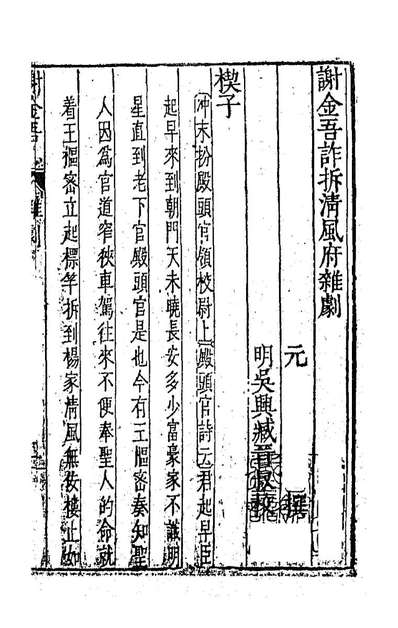 謝金吾詐拆清風府雜劇
元　撰
明吳興臧晉叔校
楔子
冲末扮殿頭官領校尉上殿頭官詩云君起早臣
起早來到朝門天未曉長安多少富豪家不識明
星直到老下官殿頭官是也今有王樞密奏知聖
人因爲官道窄狹車駕往來不便奉聖人的命就
着王樞密立起標竿拆到楊家清風無佞樓止如
謝金吾　雜劇